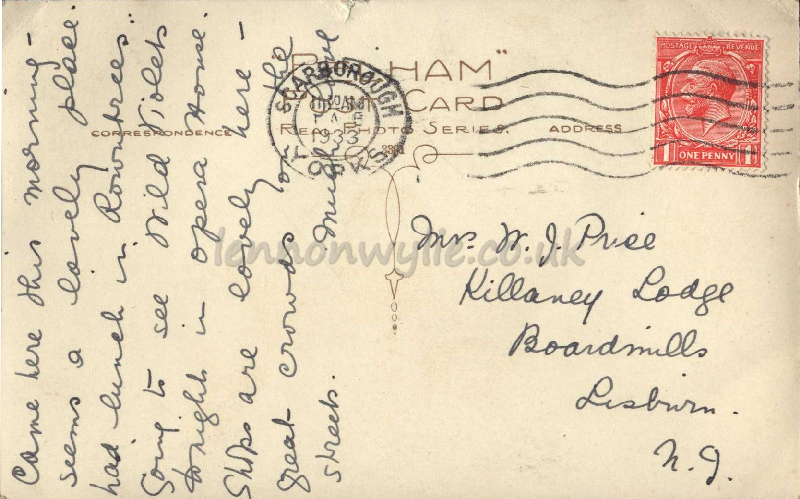 Came here this morning -
seems a lovely place.
had lunch in Rowntrees.
Going to see Wild Violets
tonight in opera House.
Shops are lovely here -
great crowds of the
much
streets.
HAM"
CARD
REAL PHOTO SERIES.
CORRESPONDENCE
ADDRESS
SCARBOROUGH
1933
YORKS
POSTAGE REVENUE
1 ONE PENNY 1
Mrs. W. J. Price
Killaney Lodge
Boardmills
Lisburn.
N. I.
lennonwylie.co.uk